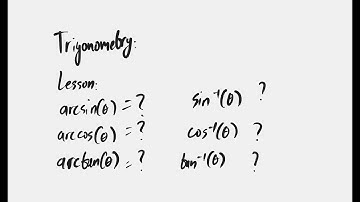 Trigonometry:
Lesson:
arcsin(θ) = ? sin⁻¹(θ) ?
arccos(θ) = ? cos⁻¹(θ) ?
arctan(θ) = ? tan⁻¹(θ) ?